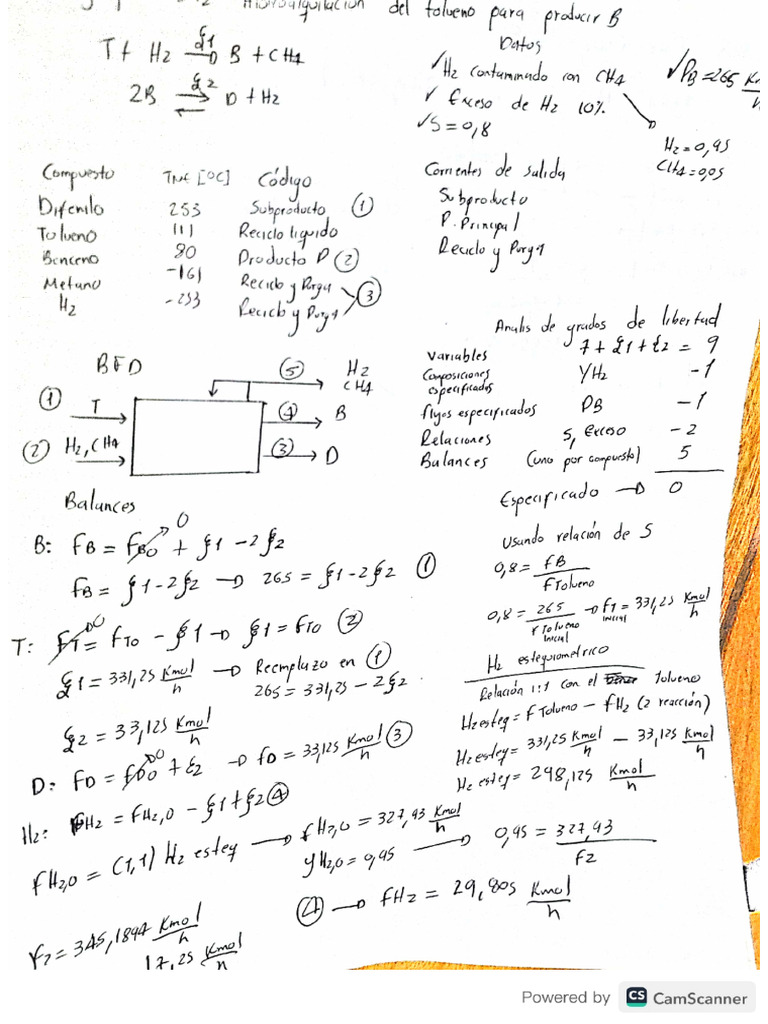 Hidroalquilación del tolueno para producir B
T + H2 →ξ1 B + CH4
2B ⇌ξ2 D + H2
Datos
✓H2 contaminado con CH4
✓ Exceso de H2 10%
✓S = 0,8
✓PB = 265 Km
H2 = 0,95
CH4 = 0,05
Compuesto Código
Difenilo 253 Subproducto ①
Tolueno 111 Reciclo liquido
Benceno 80 Producto P ②
Metano -161 Reciclo y Purga
H2 -253 Reciclo y Purga ③
Corrientes de salida
Subproducto
P. Principal
Reciclo y Purga
BFD
① T
② H2, CH4
⑤ H2
CH4
④ B
③ D
Analis de grados de libertad
Variables 7 + ξ1 + ξ2 = 9
Composiciones especificadas YH2 -1
flujos especificados PB -1
Relaciones S, exceso -2
Balances (uno por compuesto) 5
Especificado → 0
Balances
B: FB = FBO 0 + ξ1 - 2ξ2
FB = ξ1 - 2ξ2 → 265 = ξ1 - 2ξ2 ①
T: FT 0 = FTO - ξ1 → ξ1 = FTO ②
ξ1 = 331,25 Kmol/h → Reemplazo en ①
265 = 331,25 - 2ξ2
ξ2 = 33,125 Kmol/h
D: FD = FDO 0 + ξ2 → FD = 33,125 Kmol/h ③
H2: FH2 = FH2,0 - ξ1 + ξ2 ④
FH2,0 = (1,1) H2 esteq → FH2,0 = 327,93 Kmol/h
YH2,0 = 0,95 → 0,95 = 327,93/F2
F2 = 345,1894 Kmol/h
17,25 Kmol/h
④ → FH2 = 29,805 Kmol/h
Usando relación de S
0,8 = FB/FTolueno
0,8 = 265/FTolueno inicial → FT inicial = 331,25 Kmol/h
H2 estequiometrico
Relación 1:1 con el tolueno
H2 esteq = FTolueno - FH2 (2 reacción)
H2 esteq = 331,25 Kmol/h - 33,125 Kmol/h
H2 esteq = 298,125 Kmol/h
Powered by CS CamScanner